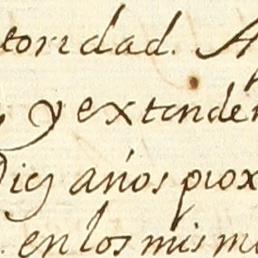 toridad. A
, y extender
Diez años prox
. en los mismo